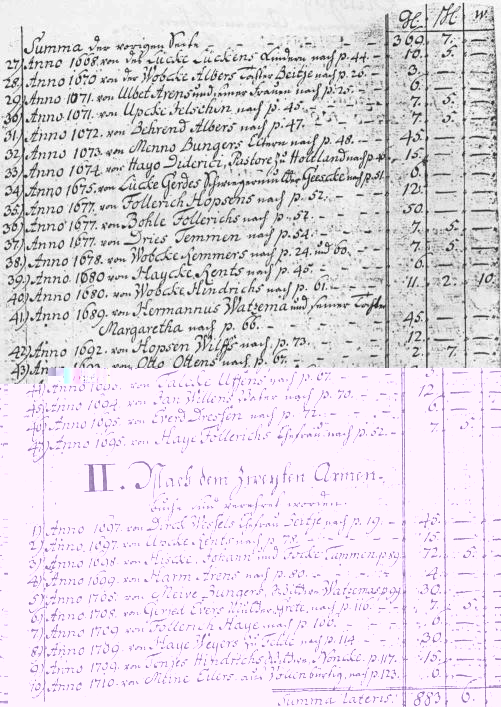 Gl. Sch. W.
Summa der vorigen Seite - - - 369. 7. —
27) Anno 1668. von der Lücke Lückens Kindern nach p. 44. - 10. 5. —
28) Anno 1670 von der Wobcke Albers Taster Beitje nach p. 26. - 3. — —
29) Anno 1671. von Ulbet Arens und seiner Frauen nach p. 25. - 6. — —
30) Anno 1671. von Upcke Jelschen nach p. 45. - - 7. 5. —
31) Anno 1672. von Behrend Albers nach p. 47. - - 7. 5. —
32) Anno 1673. von Menno Bungers Eltern nach p. 48. - - 45. — —
33) Anno 1674. von Hayo Diderici, Pastore zu Holtland nach p. 15. — —
34) Anno 1675. von Lücke Gerdes Schwiegermutter Geescke nach p. 51. 6. — —
35) Anno 1677. von Follerich Hopsens nach p. 52. - 12. — —
36) Anno 1677. von Bohle Follerichs nach p. 52. - - 50. — —
37) Anno 1677. von Dries Temmen nach p. 54. - - 7. 5. —
38) Anno 1678. von Wobcke Remmers nach p. 24. und 60. 7. 5. —
39) Anno 1680 von Haycke Rents nach p. 45. - - 6. — —
40) Anno 1680. von Wobcke Hindrichs nach p. 61. - - 11. 2. 10.
41) Anno 1689. von Hermannus Watzema und seiner
Margaretha nach p. 66. - - 45. — —
42) Anno 1692. von Hopsen Wilffs nach p. 73. - - 12. — —
43) Anno 1693. von Otto Ottens nach p. 67. - - 2. 7. —
44) Anno 1693. von Taelcke Uffens nach p. 67.
45) Anno 1694. von Jan Willems Vater nach p. 70. - - 12. — —
46) Anno 1695. von Everd Dresfen nach p. 72. - - 6. — —
47) Anno 1695. von Haye Follerichs Ehefrau nach p. 52. - 7. 5. —
II. Nach dem zweyten Armen-
buche nur verehret worden.
1) Anno 1697. von Dirck Wessels Ehefrau nach p. 19. - 45. — —
2) Anno 1697. von Upcke Rents nach p. 78. - - 15. — —
3) Anno 1698. von Hiscke, Johann und Focke Tammen p. 89. 72. 5. —
4) Anno 1699. von Harm Arens nach p. 80. - - 4. — —
5) Anno 1705. von Bungers, Watzemas p. 99. 30. — —
6) Anno 1708. von Gerjed Evers Grete, nach p. 110. - 7. 5. —
7) Anno 1709 von Follerich Haye nach p. 106. - - 6. — —
8) Anno 1709. von Haye Weyers zu nach p. 114 - - 30. — —
9) Anno 1709. von Tonjes Hindrichs p. 117. - 15. — —
10) Anno 1710. von Meine Eilers aus nach p. 123. - 6. — —
Summa Lateris: 883. 6. —